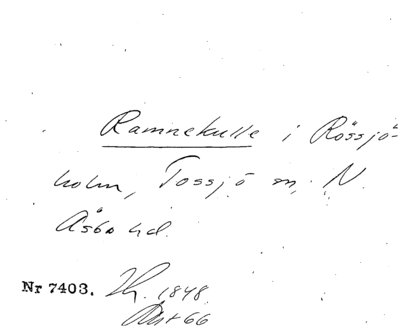 Ramnekulle i Rössjö-
holm, Tossjö sn, N.
Åsbo hd.
Nr 7403. 1848
66